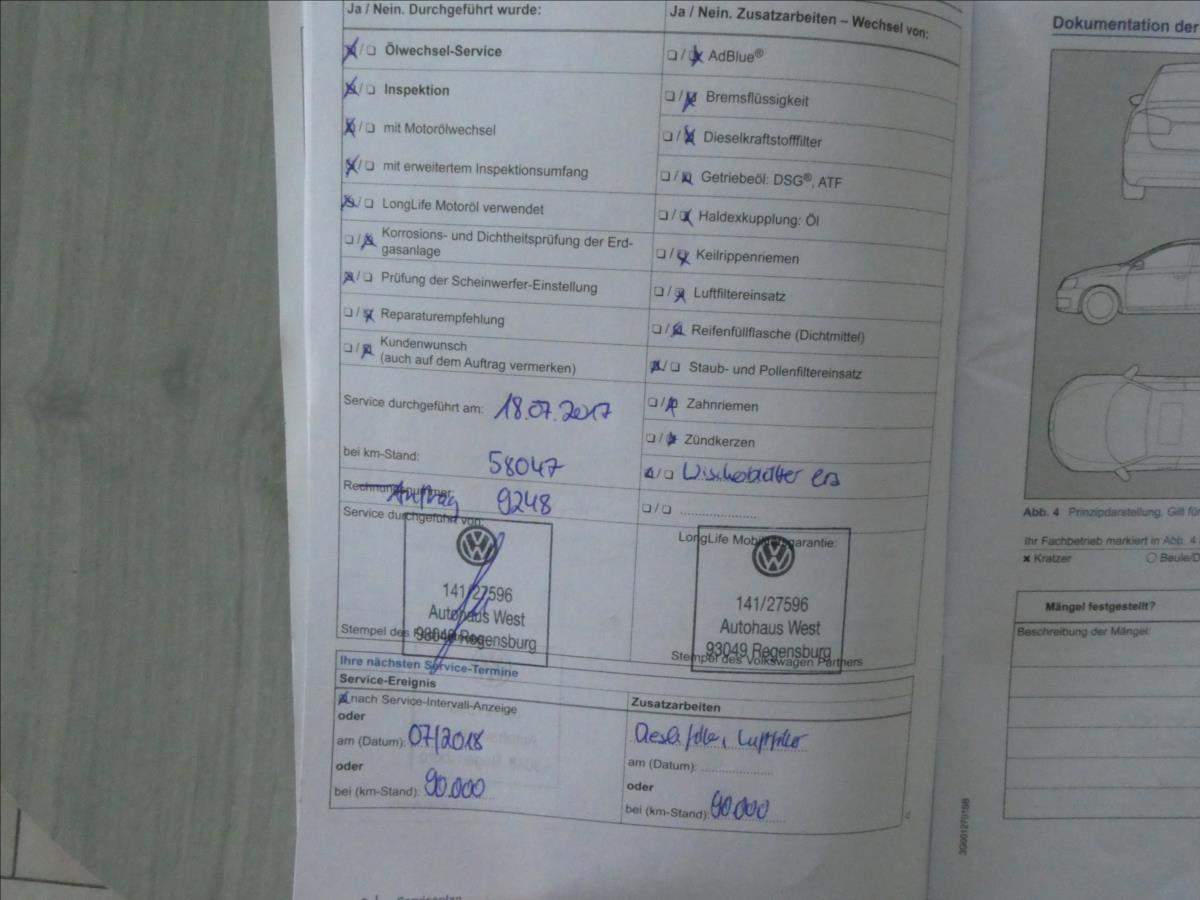 Ja / Nein. Durchgeführt wurde:
Ölwechsel-Service
Inspektion
mit Motorölwechsel
mit erweitertem Inspektionsumfang
LongLife Motoröl verwendet
Korrosions- und Dichtheitsprüfung der Erd-
gasanlage
Prüfung der Scheinwerfer-Einstellung
Reparaturempfehlung
Kundenwunsch
(auch auf dem Auftrag vermerken)
Service durchgeführt am: 18.07.2017
bei km-Stand: 58047
Rechnungsnummer: Auftrag 9248
Service durchgeführt von:
141/27596
Autohaus West
93049 Regensburg
Stempel des
Ja / Nein. Zusatzarbeiten – Wechsel von:
AdBlue®
Bremsflüssigkeit
Dieselkraftstofffilter
Getriebeöl: DSG®, ATF
Haldexkupplung: Öl
Keilrippenriemen
Luftfiltereinsatz
Reifenfüllflasche (Dichtmittel)
Staub- und Pollenfiltereinsatz
Zahnriemen
Zündkerzen
Wischerblätter ers
LongLife Mobilitätsgarantie:
141/27596
Autohaus West
93049 Regensburg
Stempel des Volkswagen Partners
Ihre nächsten Service-Termine
Service-Ereignis
nach Service-Intervall-Anzeige
oder
am (Datum): 07/2018
oder
bei (km-Stand): 90.000
Zusatzarbeiten
Luftfilter
am (Datum):
oder
bei (km-Stand): 90.000
3G0012701BB
Dokumentation der
Abb. 4 Prinzipdarstellung. Gilt für
Ihr Fachbetrieb markiert in Abb. 4
Kratzer
Beule/D
Mängel festgestellt?
Beschreibung der Mängel: